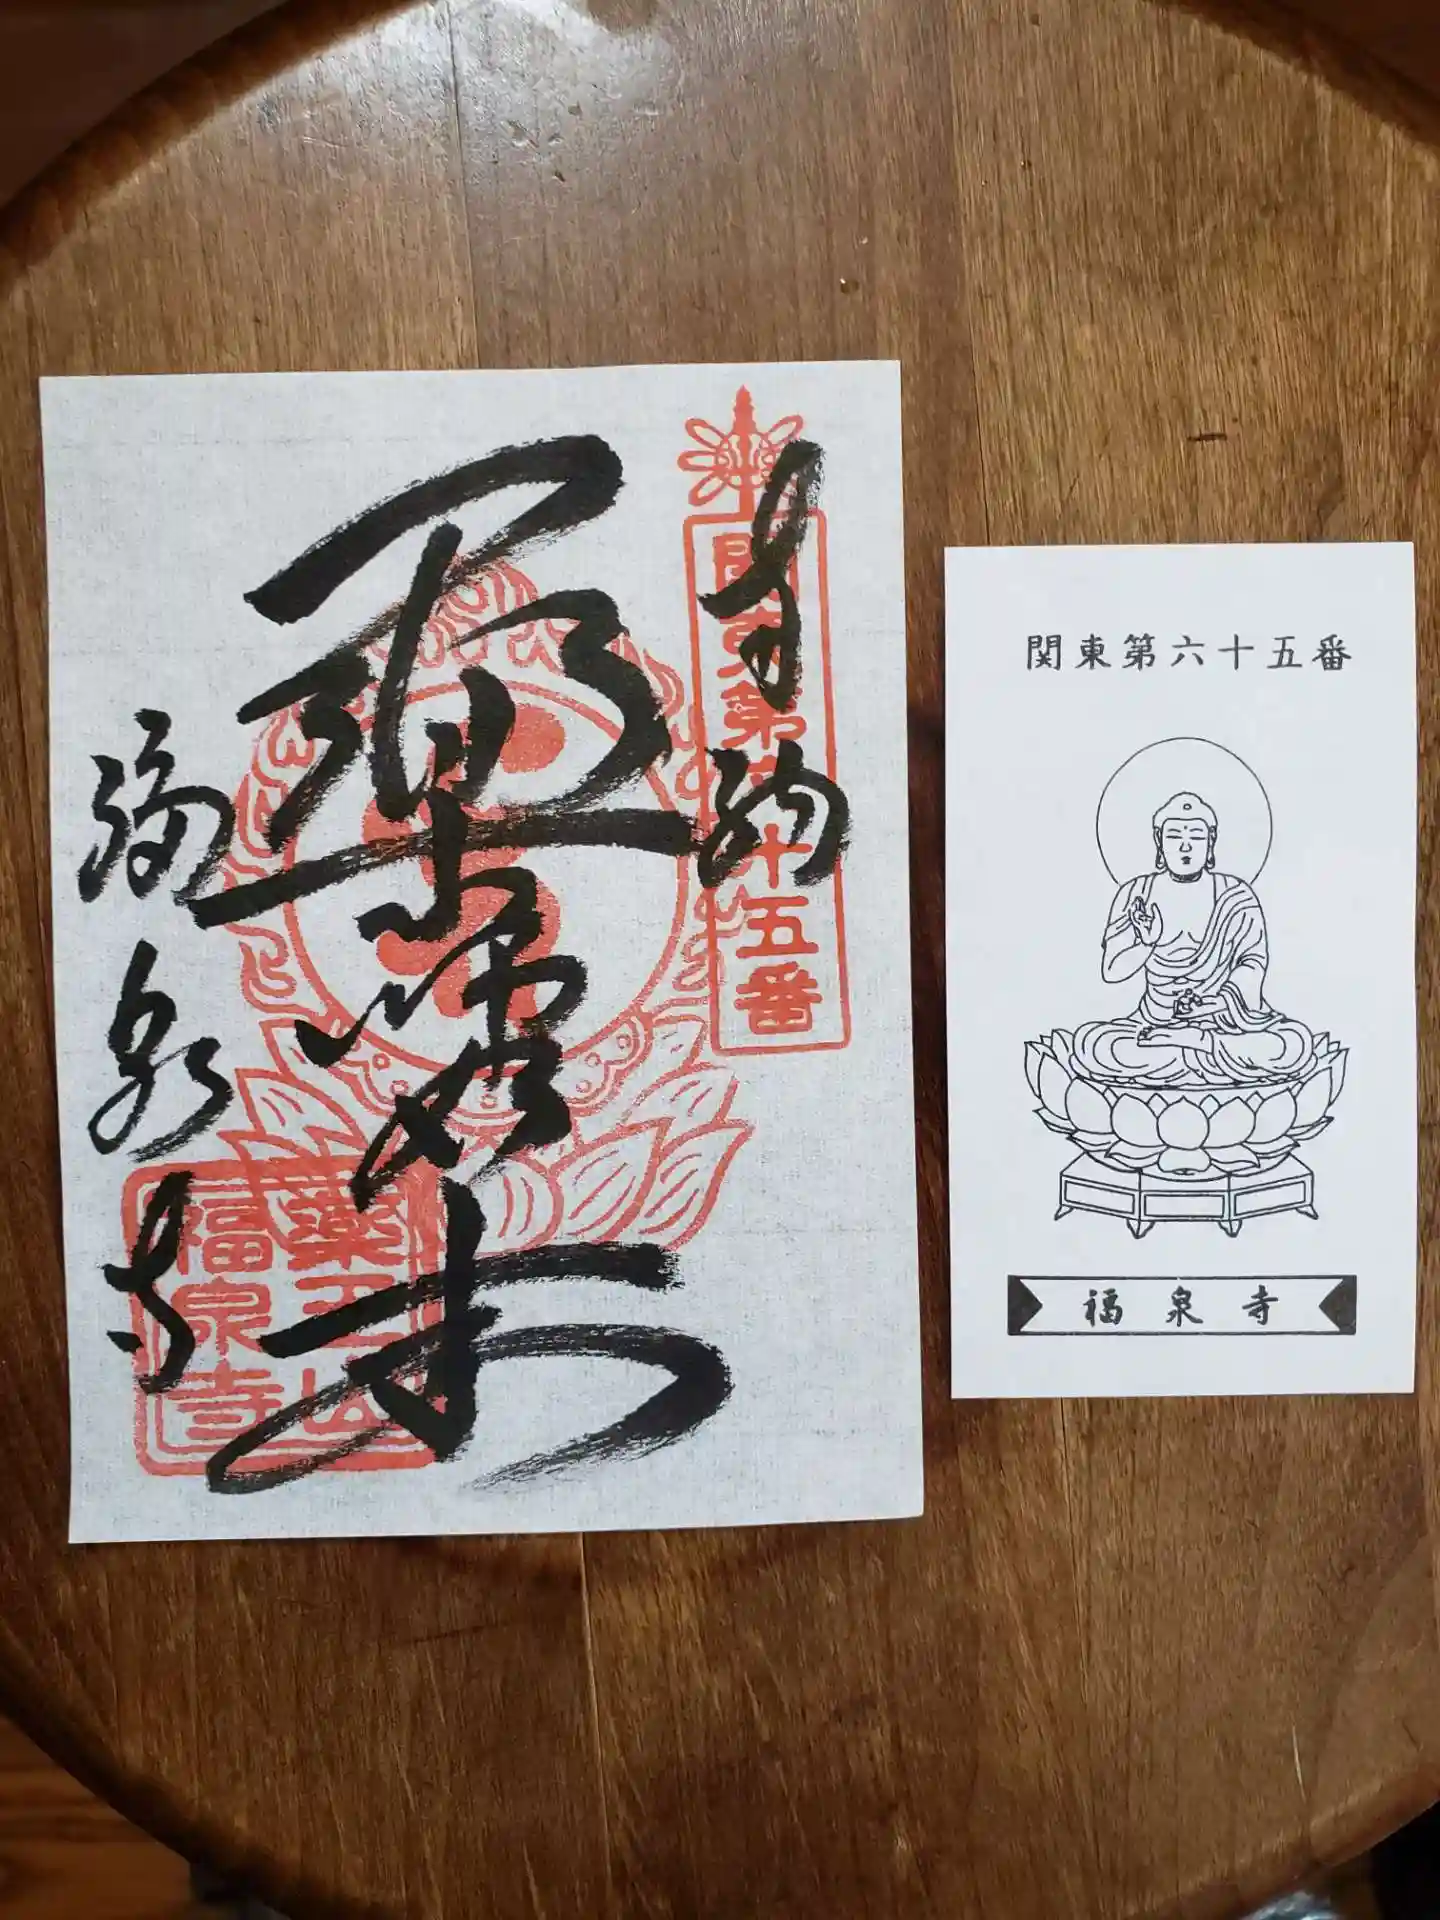 奉納
関東第六十五番
如来
福泉寺
薬王山
福泉寺
関東第六十五番
福泉寺